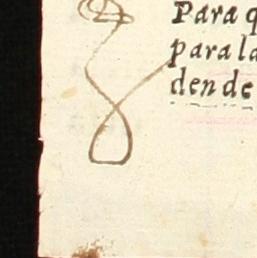 Para q
para la
den de